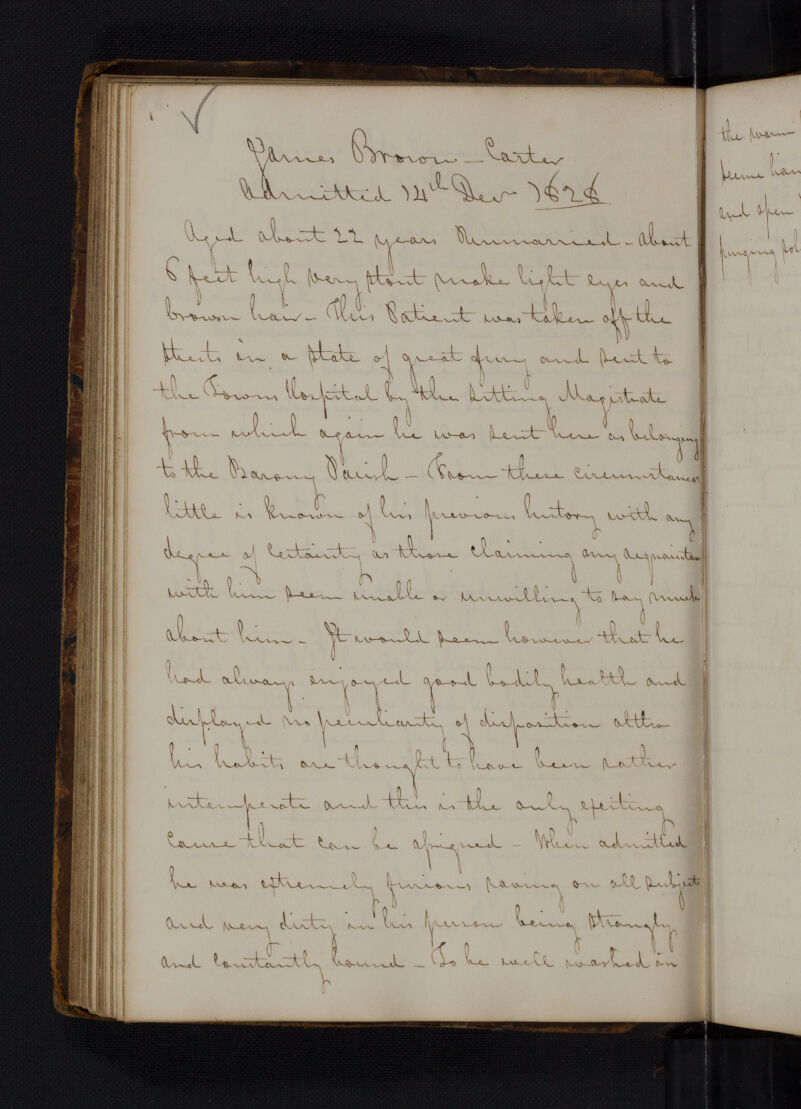 James Brown – Carter
Admitted 14th Decr 1828
Aged about 22 years Unmarried – About
6 feet high very stout make light eyes and
brown hair – This Patient was taken off the
streets in a state of great fury and sent to
the Towns Hospital by the sitting Magistrate
from which again he was sent here as belonging
to the Barony Parish – From these circumstances
little is known of his previous history with any
degree of certainty as those claiming any acquaintan
with him seem unable or unwilling to say much
about him – It would seem however that he
had always enjoyed good bodily health and
displayed no peculiarity of disposition altho
his habits are thought to have been rather
intemperate and this is the only exciting
cause that can be assigned – When admitted
he was extremely furious raving on all subjects
and very dirty in his person being strongly
and constantly bound – To be well washed in
the warm
seems
and open
purging